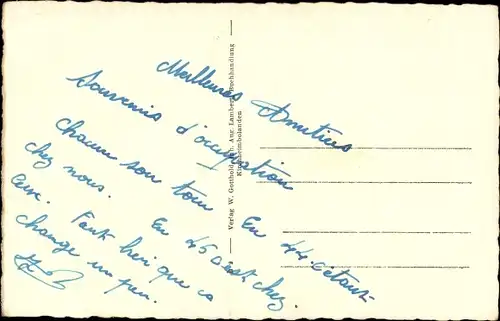 Meilleures Amitiés
Souvenirs d'occupation
chacun son tour En 44 c'était
chez nous. En 45 c'est chez
eux. Faut bien que ça
change un peu.
Verlag W. Gotthold, Aug. Lambert, Buchhandlung
Kirchheimbolanden